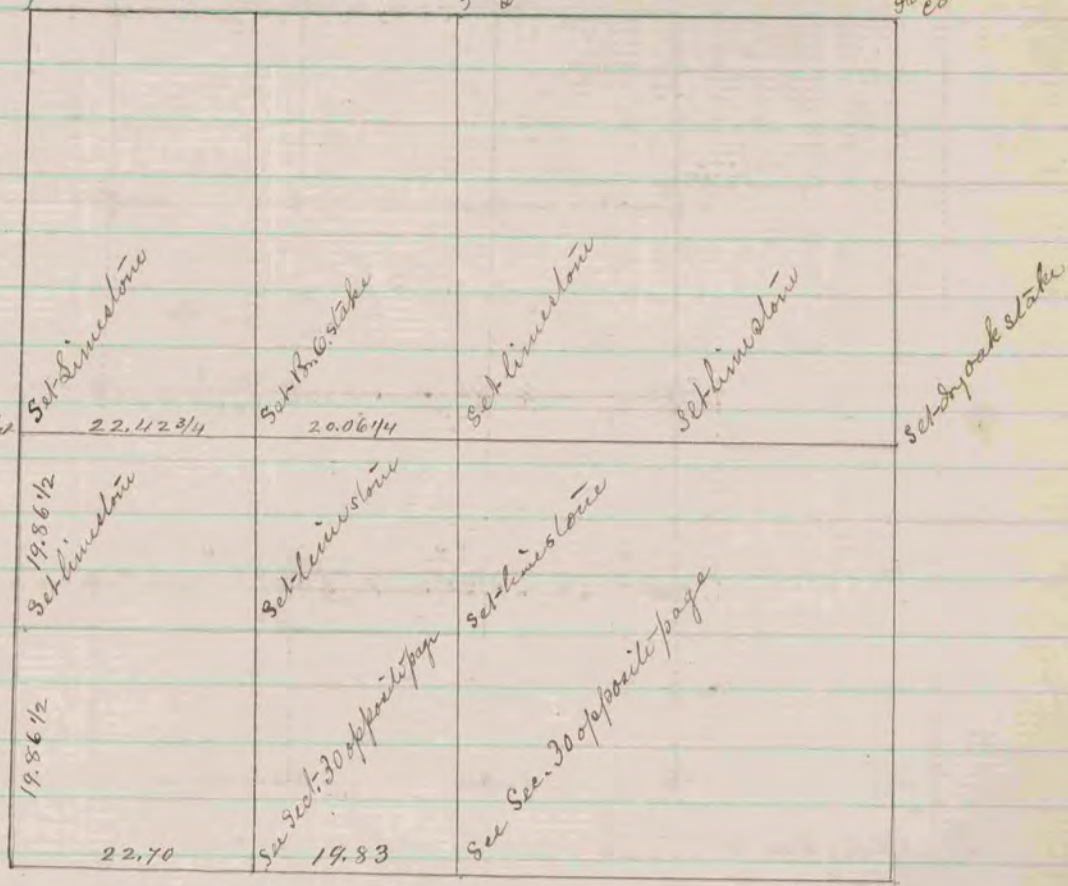 Set Limestone
Set B.O. stake
Set limestone
Set limestone
Set dry oak stake
22.42 3/4
20.06 1/4
19.86 1/2
Set limestone
Set limestone
Set limestone
19.86 1/2
See Sect. 30 opposite page
See Sec. 30 opposite page
22.70
19.83